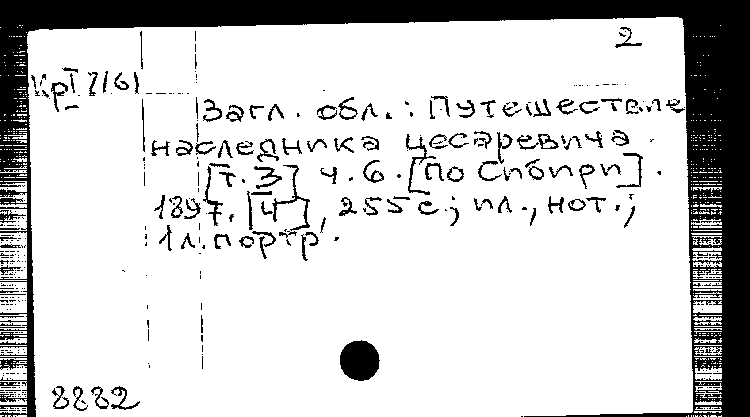 2
КрI 2/61
Загл. обл.: Путешествие
наследника цесаревича.
[т. 3] ч. 6. [По Сибири].
1897. [4], 255 с.; ил., нот.;
1 л. портр.
8882